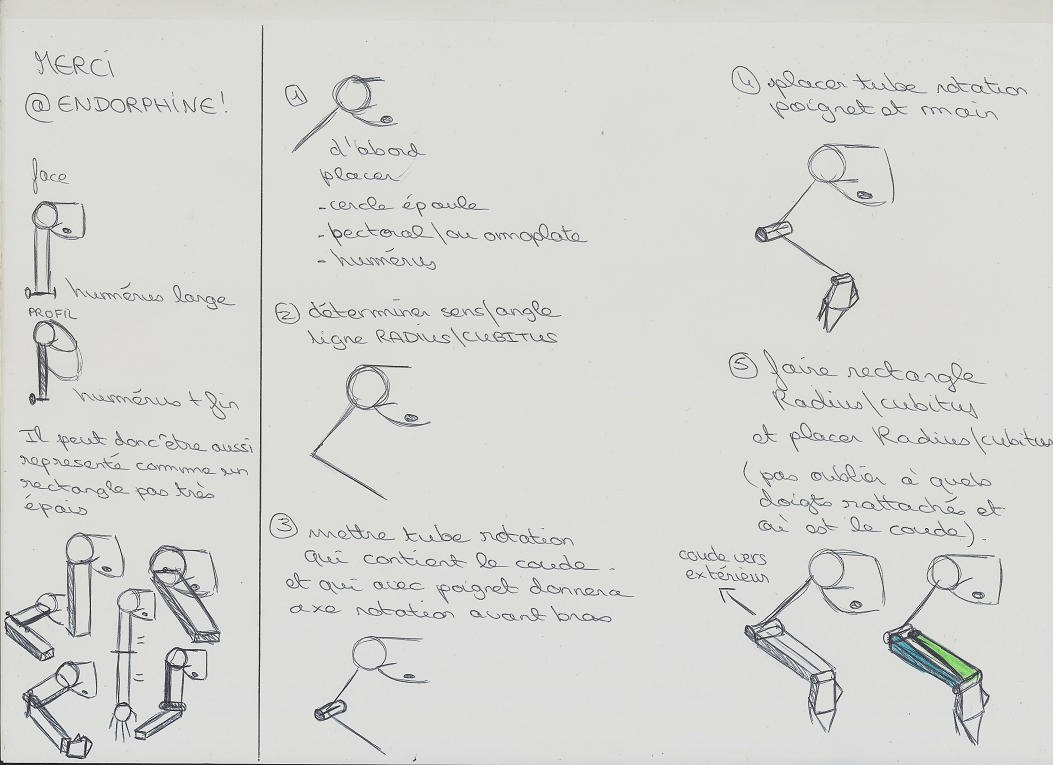 MERCI
@ENDORPHINE!
face
humérus large
PROFIL
humérus + fin
Il peut donc être aussi
représenté comme un
rectangle pas très
épais
1
d'abord
placer
- cercle épaule
- pectoral/ou omoplate
- humérus
2 déterminer sens/angle
ligne RADIUS/CUBITUS
3 mettre tube rotation
qui contient le coude.
et qui avec poignet donnera
axe rotation avant bras
4 placer tube rotation
poignet et main
5 faire rectangle
Radius/cubitus
et placer Radius/cubitus
(pas oublier à quels
doigts rattachés et
où est le coude).
coude vers
extérieur